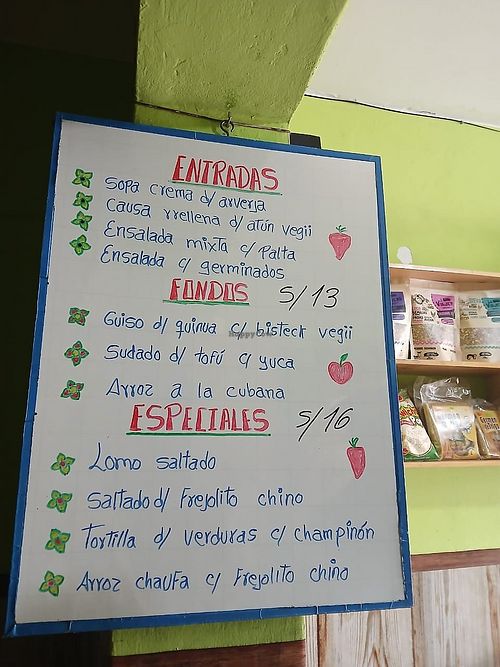 ENTRADAS
Sopa crema d/ arverja
Causa rrellena d/ atún vegii
Ensalada mixta c/ Palta
Ensalada c/ germinados
FONDOS S/13
Guiso d/ quinua c/ bisteck vegii
Sudado d/ tofú c/ yuca
Arroz a la cubana
ESPECIALES S/16
Lomo saltado
Saltado d/ Frejolito chino
Tortilla d/ verduras c/ champinón
Arroz chaufa c/ Frejolito chino